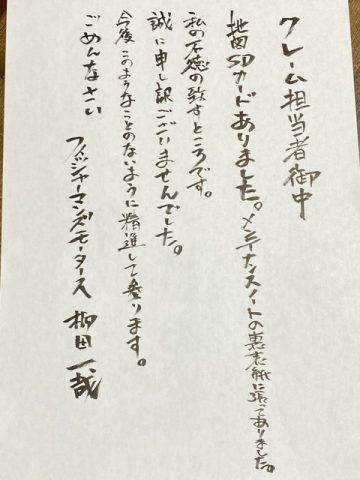 クレーム担当者御中
地図SDカードありました。メンテナンスノートの裏表紙に張ってありました。
私の不徳の致すところです。
誠に申し訳ございませんでした。
今後このようなことのないように精進して参ります。
ごめんなさい
フィッシャーマンズモータース 柳田一哉